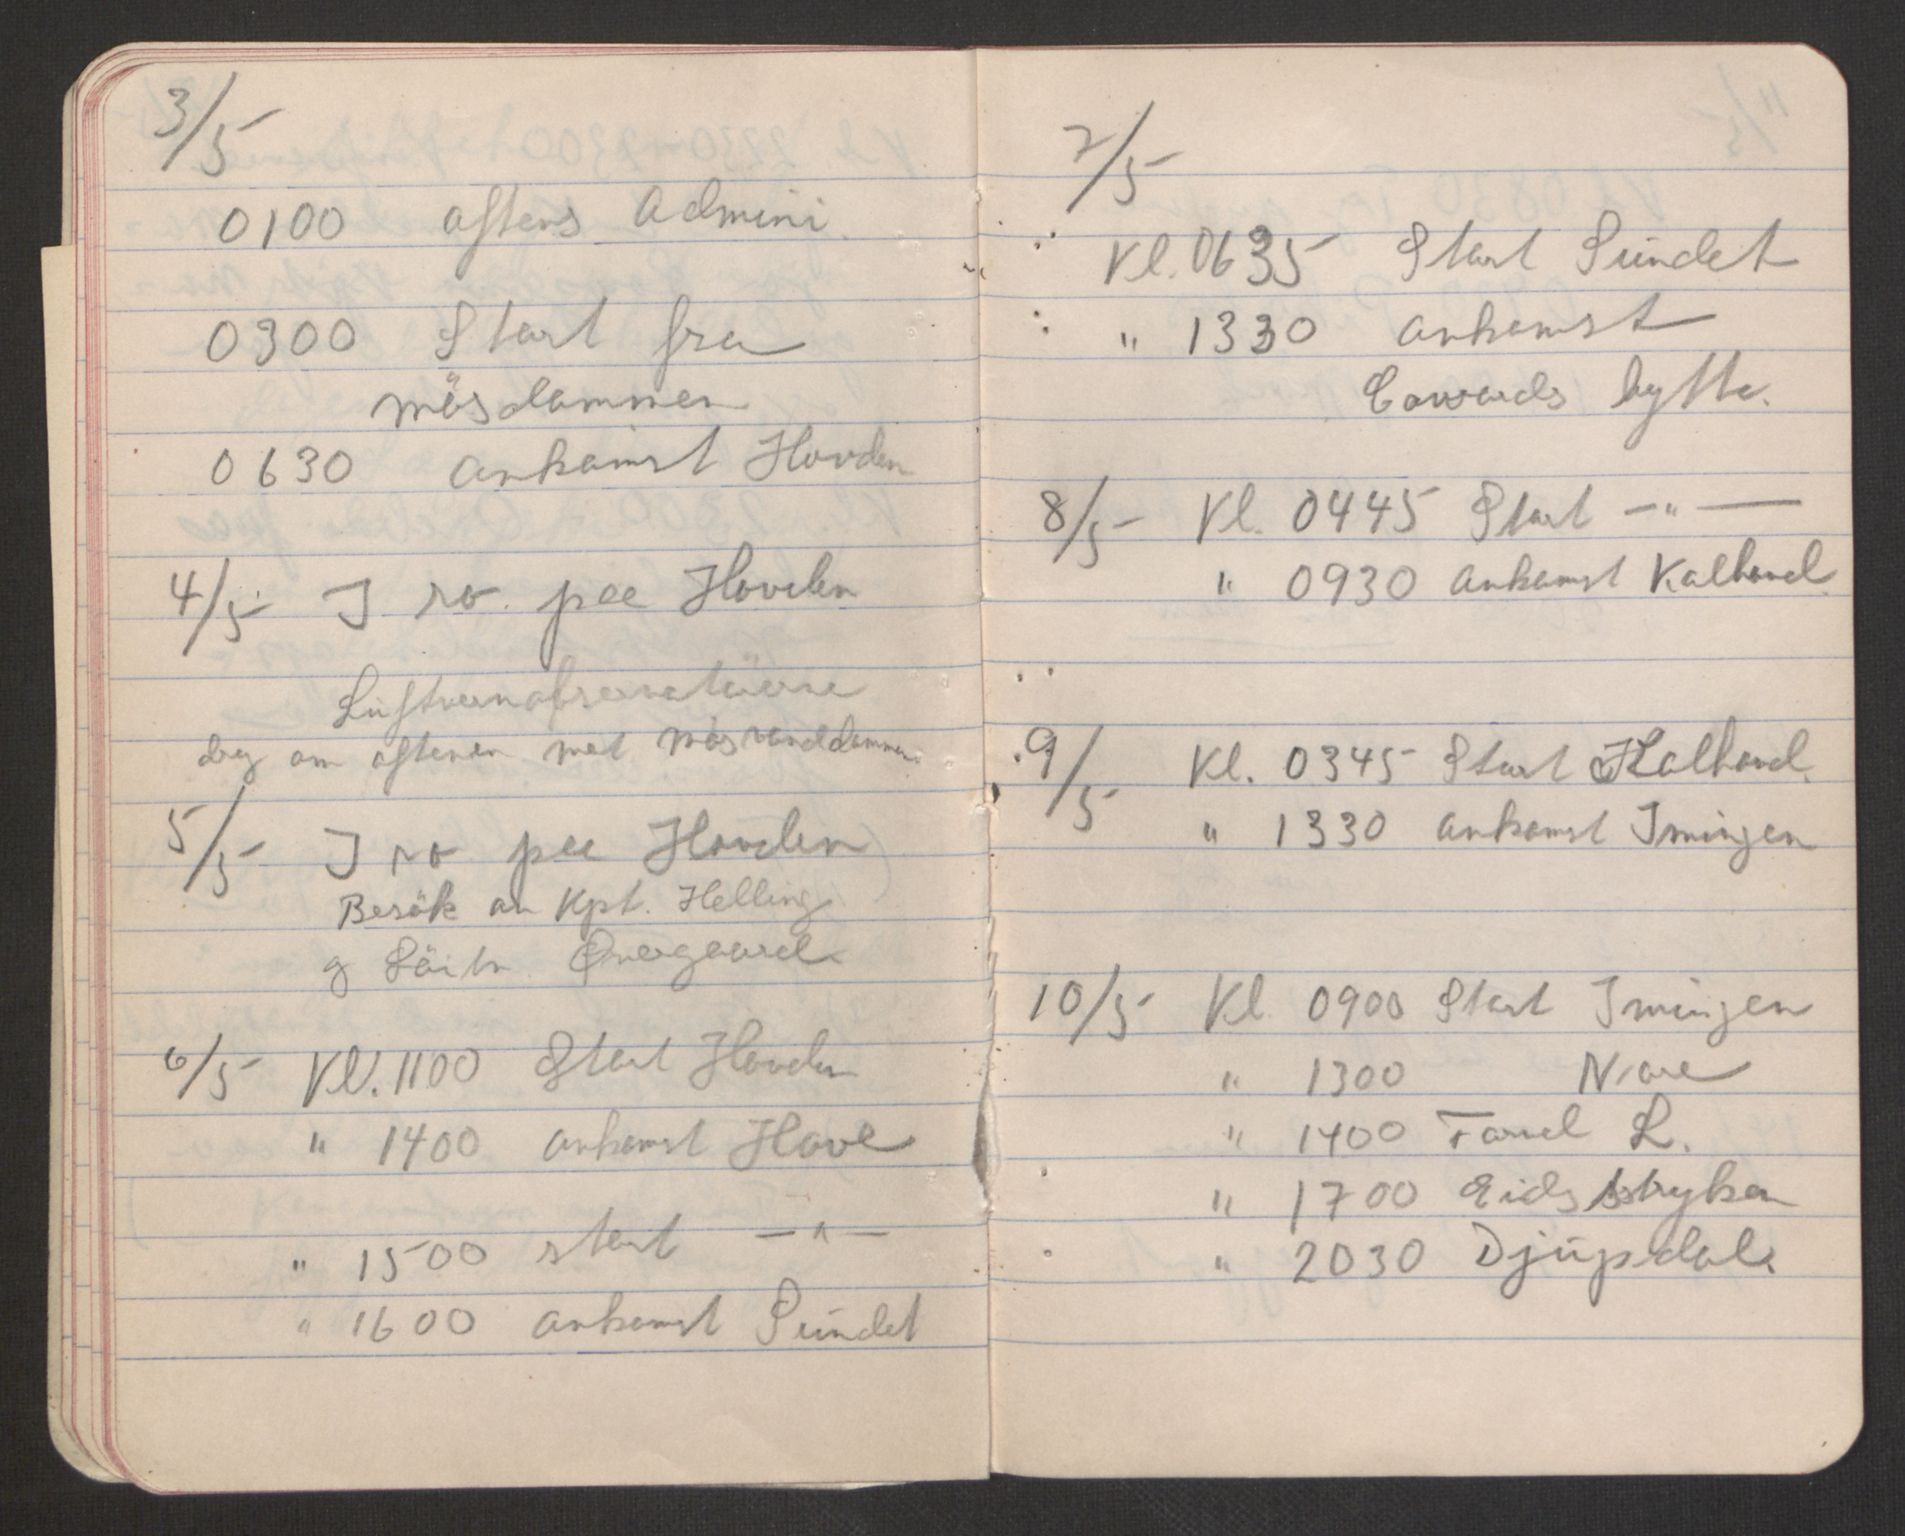 3/5
0100 aftens Admini.
0300 Start fra
møsdammen
0630 ankomst Hovden
4/5 I ro pee Hovden
Luftvernobservatøerne
drog om aftenen met Møsvanddammen
5/5 I ro pee Hovden
Besök av Kpt. Helling
og Løitn. Overgaard.
6/5 Kl. 1100 Start Hovden
" 1400 ankomst Hove
" 1500 start —"—
" 1600 ankomst Sundet
7/5
Kl. 0635 Start Sundet
" 1330 ankomst
hytte.
8/5 Kl. 0445 Start —"—
" 0930 ankomst Kalhovd.
9/5 Kl. 0345 Start Kalhovd.
" 1330 ankomst Imingen
10/5 Kl. 0900 Start Imingen
" 1300 Nore
" 1400 L.
" 1700 Eidsstryken
" 2030 Djupdal.